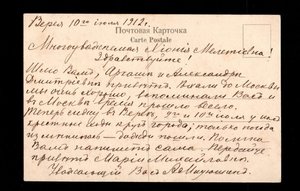 Верея 10го июля 1912г.
Почтовая Карточка
Carte Postale
Многоуважаемая Леонія Мелетіевна!
Здравствуйте!
Шлю Вамъ, и Александръ
Дмитріевнѣ привѣтъ. Ѣхали до Москвы
мы очень хорошо, Вспоминали Васъ и
въ Москвѣ время прошло весело.
Теперь сижу въ Вереѣ, 9го и 10го июля у насъ
крестные ходы кругъ города; только погода
дожди пошли.
Вамъ напишетъ сама. Передайте
привѣтъ Маріи Михайловнѣ.
Уважающій Васъ